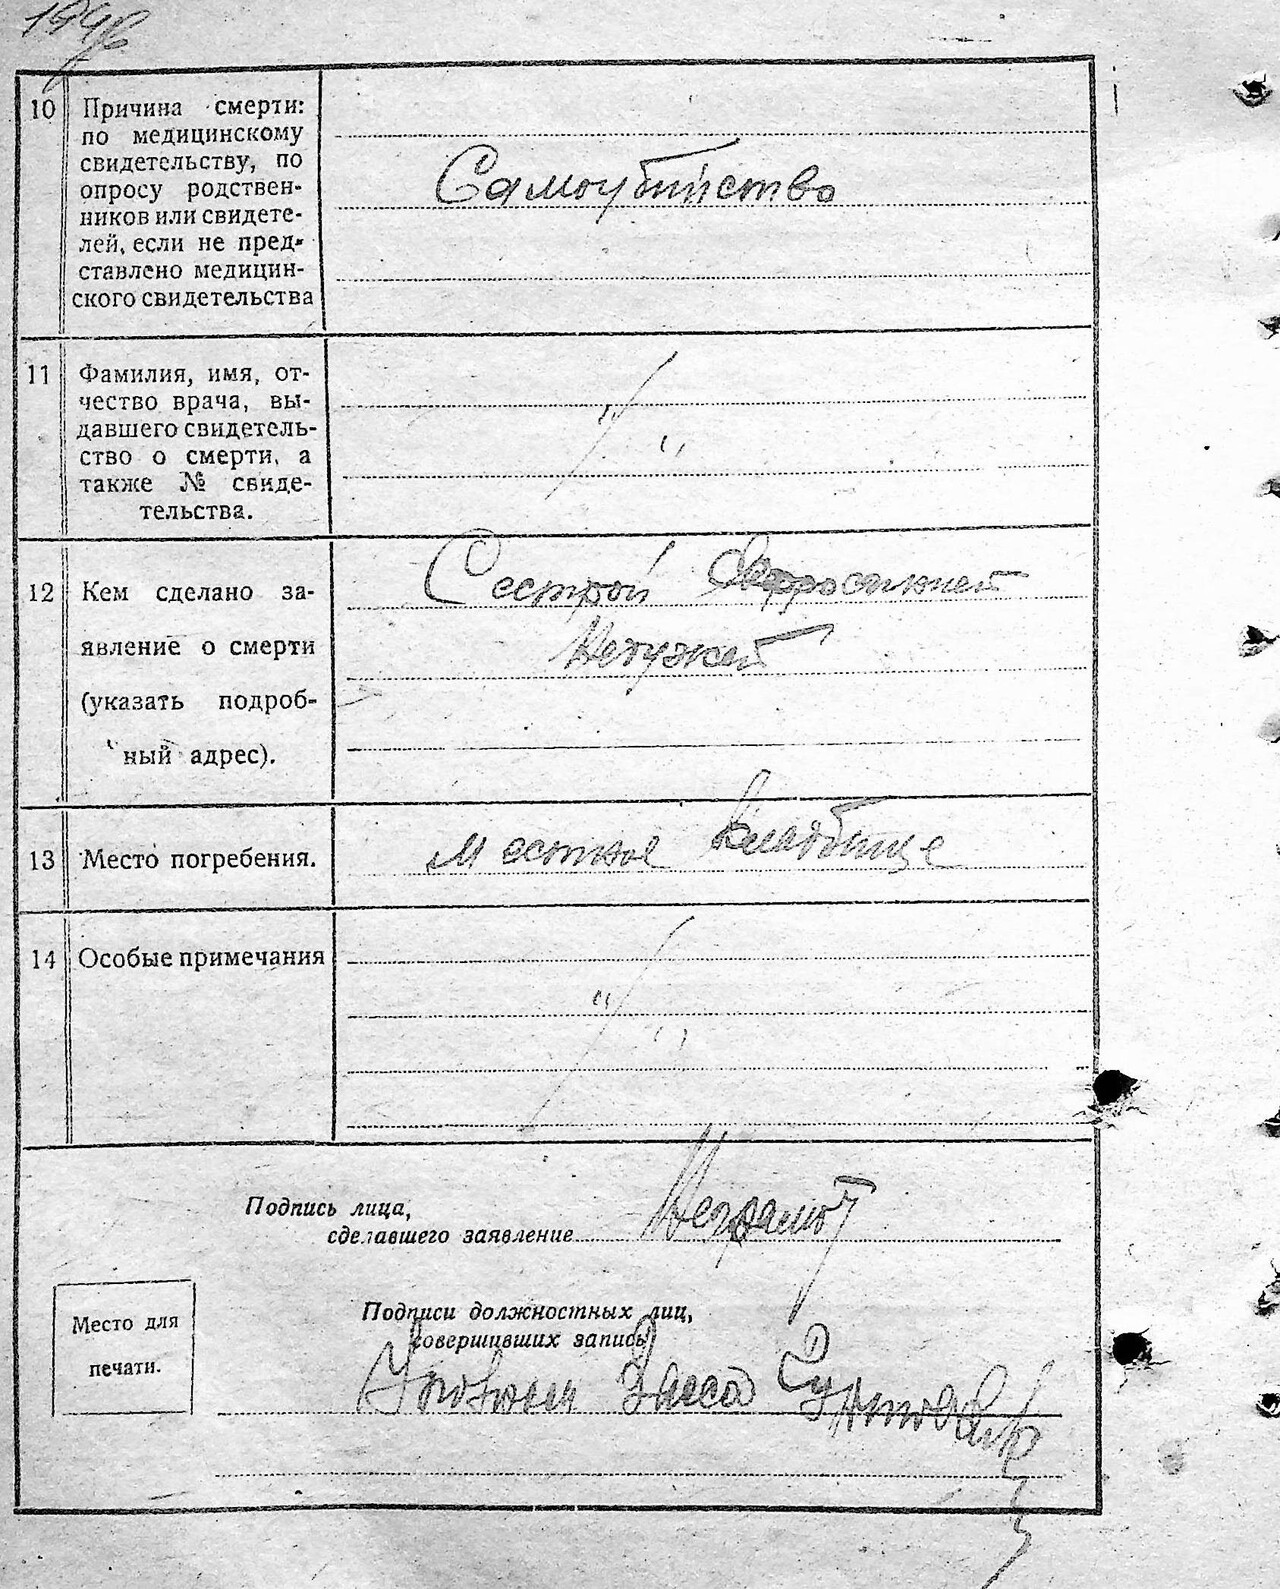 10 Причина смерти:
по медицинскому
свидетельству, по
опросу родствен-
ников или свидете-
лей, если не пред-
ставлено медицин-
ского свидетельства
Самоубийство
11 Фамилия, имя, от-
чество врача, вы-
давшего свидетель-
ство о смерти, а
также № свиде-
тельства.
12 Кем сделано за-
явление о смерти
(указать подроб-
ный адрес).
Сестрой
Нетужей
13 Место погребения.
местное кладбище
14 Особые примечания
Подпись лица,
сделавшего заявление
Неграмот
Подписи должностных лиц,
совершивших запись
Место для
печати.